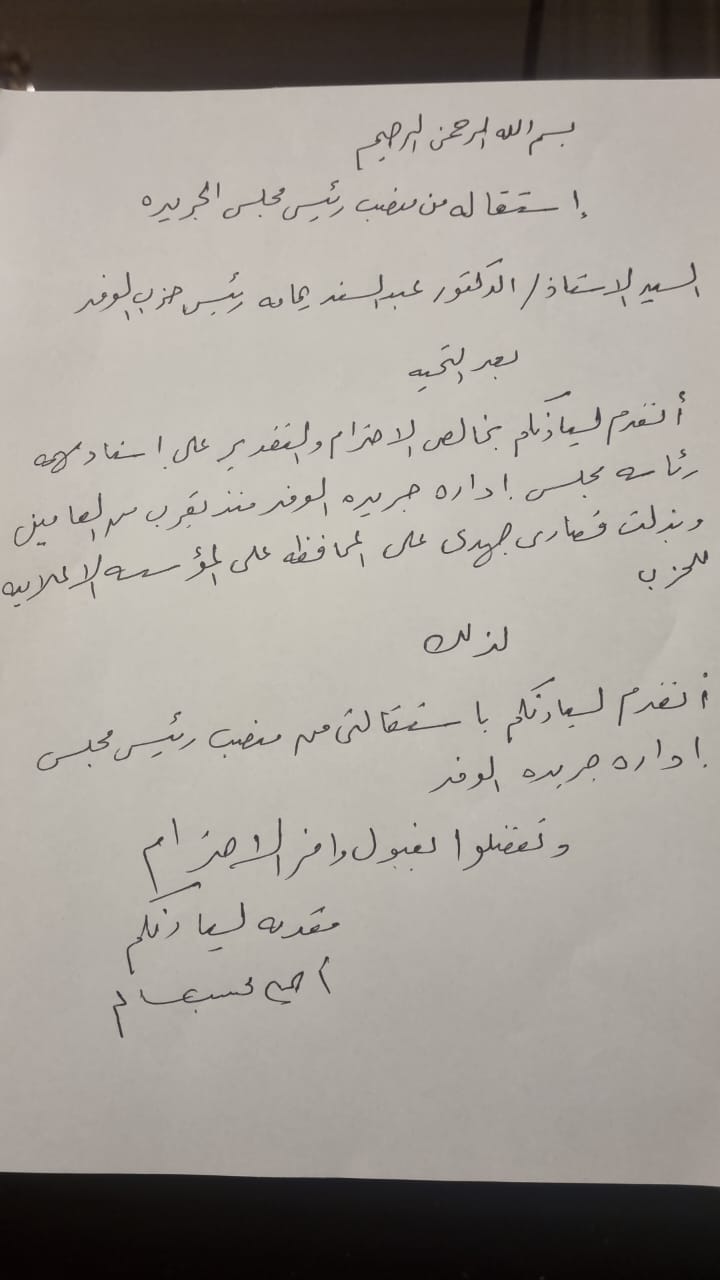 بسم الله الرحمن الرحيم
إستقاله من منصب رئيس مجلس الجريده
السيد الاستاذ/ الدكتور عبد السند يمامه رئيس حزب الوفد
بعد التحيه
أتقدم لسيادتكم بخالص الاحترام والتقدير على إسناد مهمه
رئاسه مجلس إداره جريده الوفد منذ يقرب من العامين
وبذلت قصارى جهدى على المحافظه على المؤسسه الإعلاميه
للحزب
لذلك
أتقدم لسيادتكم بإستقالتى من منصب رئيس مجلس
إداره جريده الوفد
وتفضلوا بقبول وافر الاحترام
مقدمه لسيادتكم
أيمن محسب